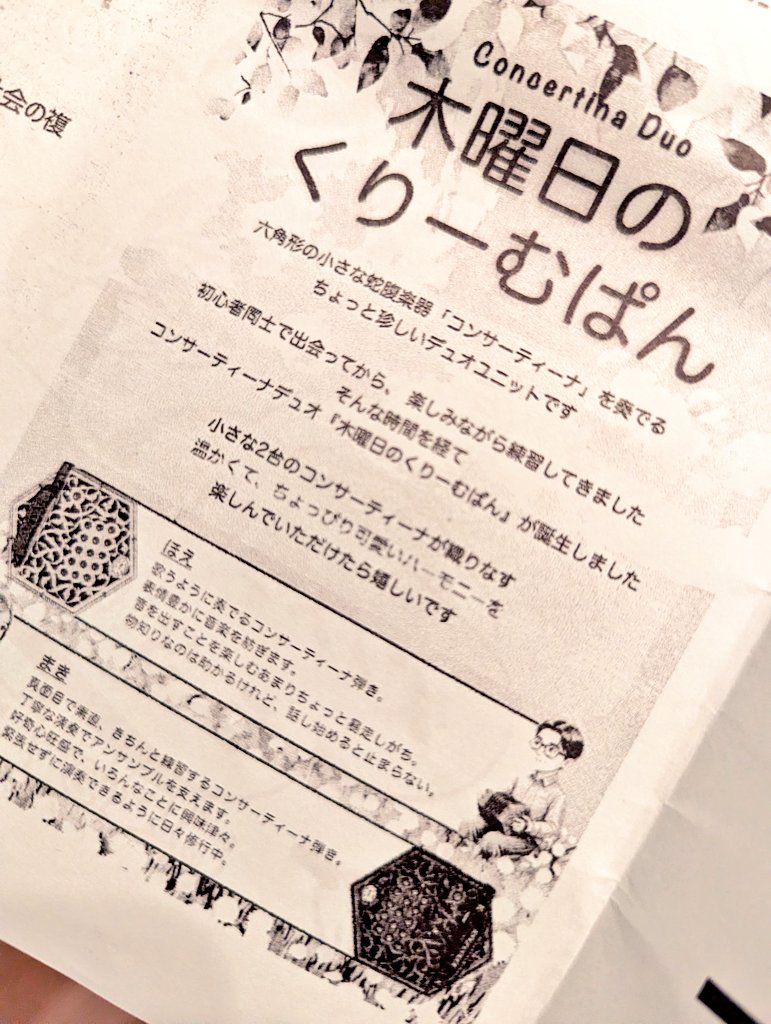 会の複
Concertina Duo
木曜日の
くりーむぱん
六角形の小さな蛇腹楽器「コンサーティーナ」を奏でる
ちょっと珍しいデュオユニットです
初心者同士で出会ってから、楽しみながら練習してきました
そんな時間を経て
コンサーティーナデュオ『木曜日のくりーむぱん』が誕生しました
小さな2台のコンサーティーナが織りなす
温かくて、ちょっぴり可愛いハーモニーを
楽しんでいただけたら嬉しいです
ほえ
歌うように奏でるコンサーティーナ弾き。
表情豊かに音楽を紡ぎます。
音を出すことを楽しむあまりちょっと暴走しがち。
物知りなのは助かるけれど、話し始めると止まらない。
まき
真面目で素直、きちんと練習するコンサーティーナ弾き。
丁寧な演奏でアンサンブルを支えます。
好奇心旺盛で、いろんなことに興味津々。
緊張せずに演奏できるように日々修行中。